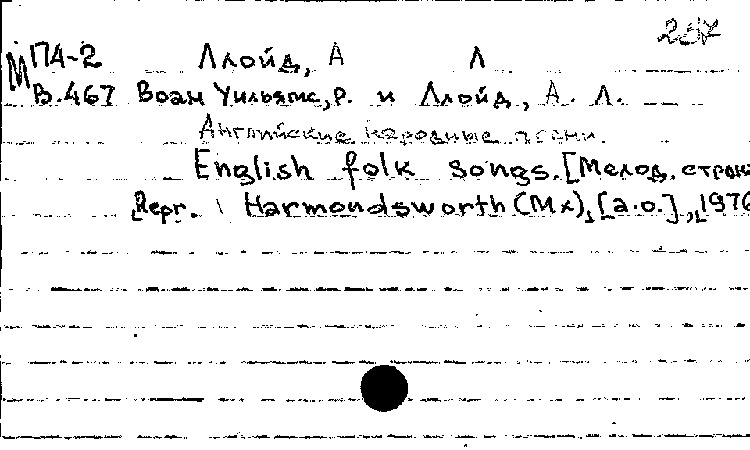 257
М ПА-2 Ллойд, А Л
В.467 Воан Уильямс, Р. и Ллойд, А. Л.
Английские народные песни.
English folk songs. [Мелод. строки
Repr. Harmondsworth (Mx), [a.o.], 1976